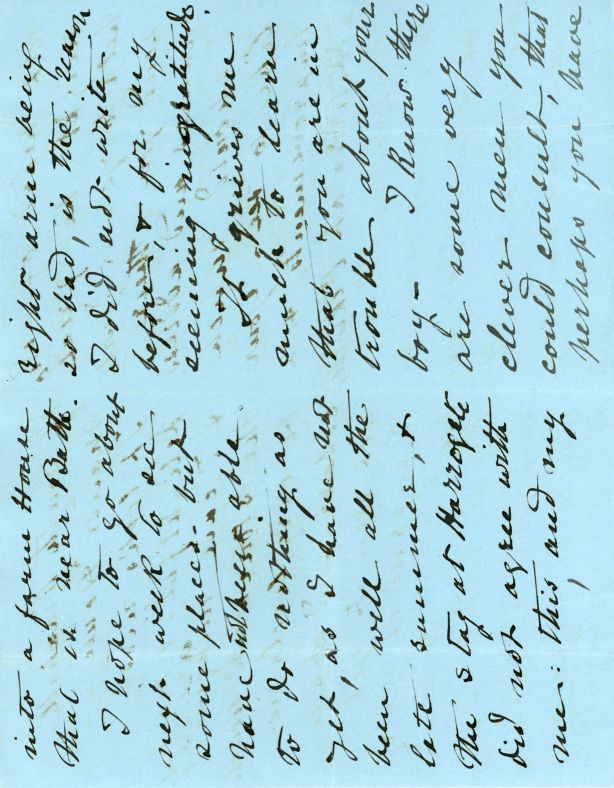 into a farm House
that is near Bath.
I hope to go about
next week to see
some places - but
have not been able
to do nothing as
yet, as I have not
been well all the
late summer, &
the stay at Harrogate
did not agree with
me: this, and my
right arm being
so bad, is the reason
I did not write
before, & for my
seeming ingratitude.
It grieves me
much to learn
that you are in
trouble about your
boy - I know there
are some very
clever men you
could consult, that
perhaps you have